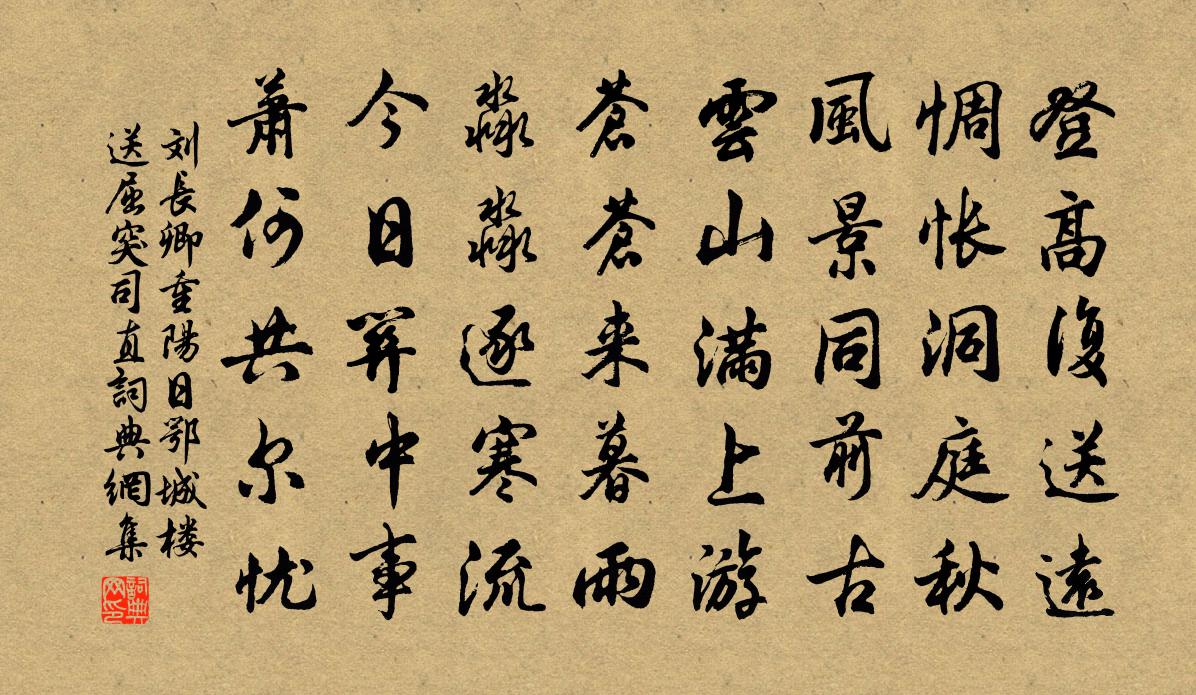 登高復送遠
惆怅洞庭秋
風景同前古
雲山满上游
蒼蒼来暮雨
淼淼逐寒流
今日關中事
蕭何共尔忧
刘長卿重陽日鄂城楼
送屈突司直詞典網集
詞典
网印